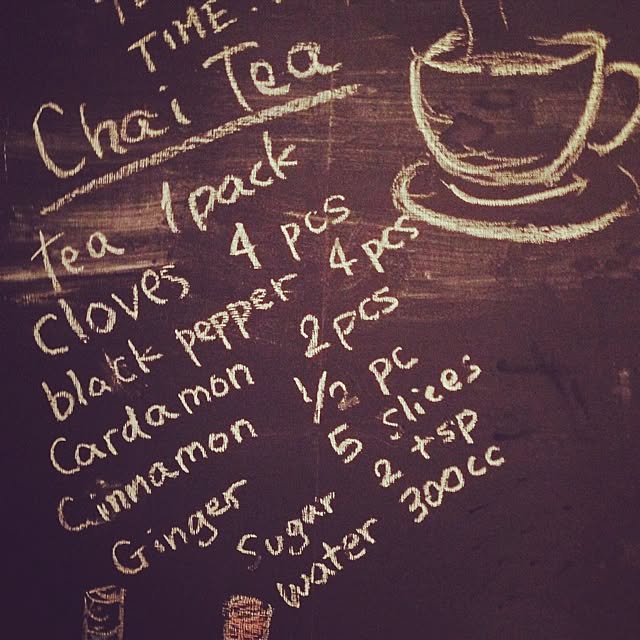 TIME.
Chai Tea
tea 1 pack
cloves 4 pcs
black pepper 4 pcs
Cardamon 2 pcs
Cinnamon 1/2 pc
Ginger 5 slices
sugar 2 tsp
water 300cc